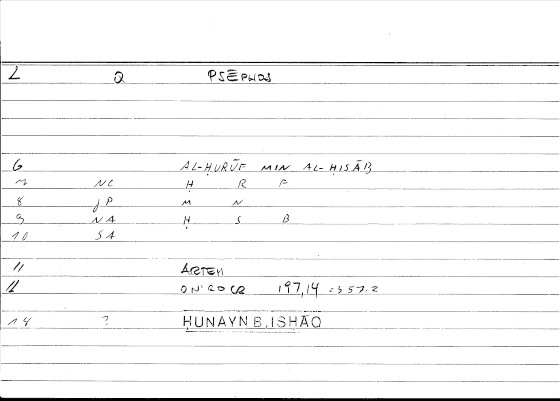 L Q PSEPHOS
6 AL-ḤURŪF MIN AL-ḤISĀB
7 NC Ḥ R F
8 JP M N
9 NA Ḥ S B
10 SA
11 ARTEM
12 ONIROCR 197,14 = 357.2
14 ? ḤUNAYN B. ISHĀQ